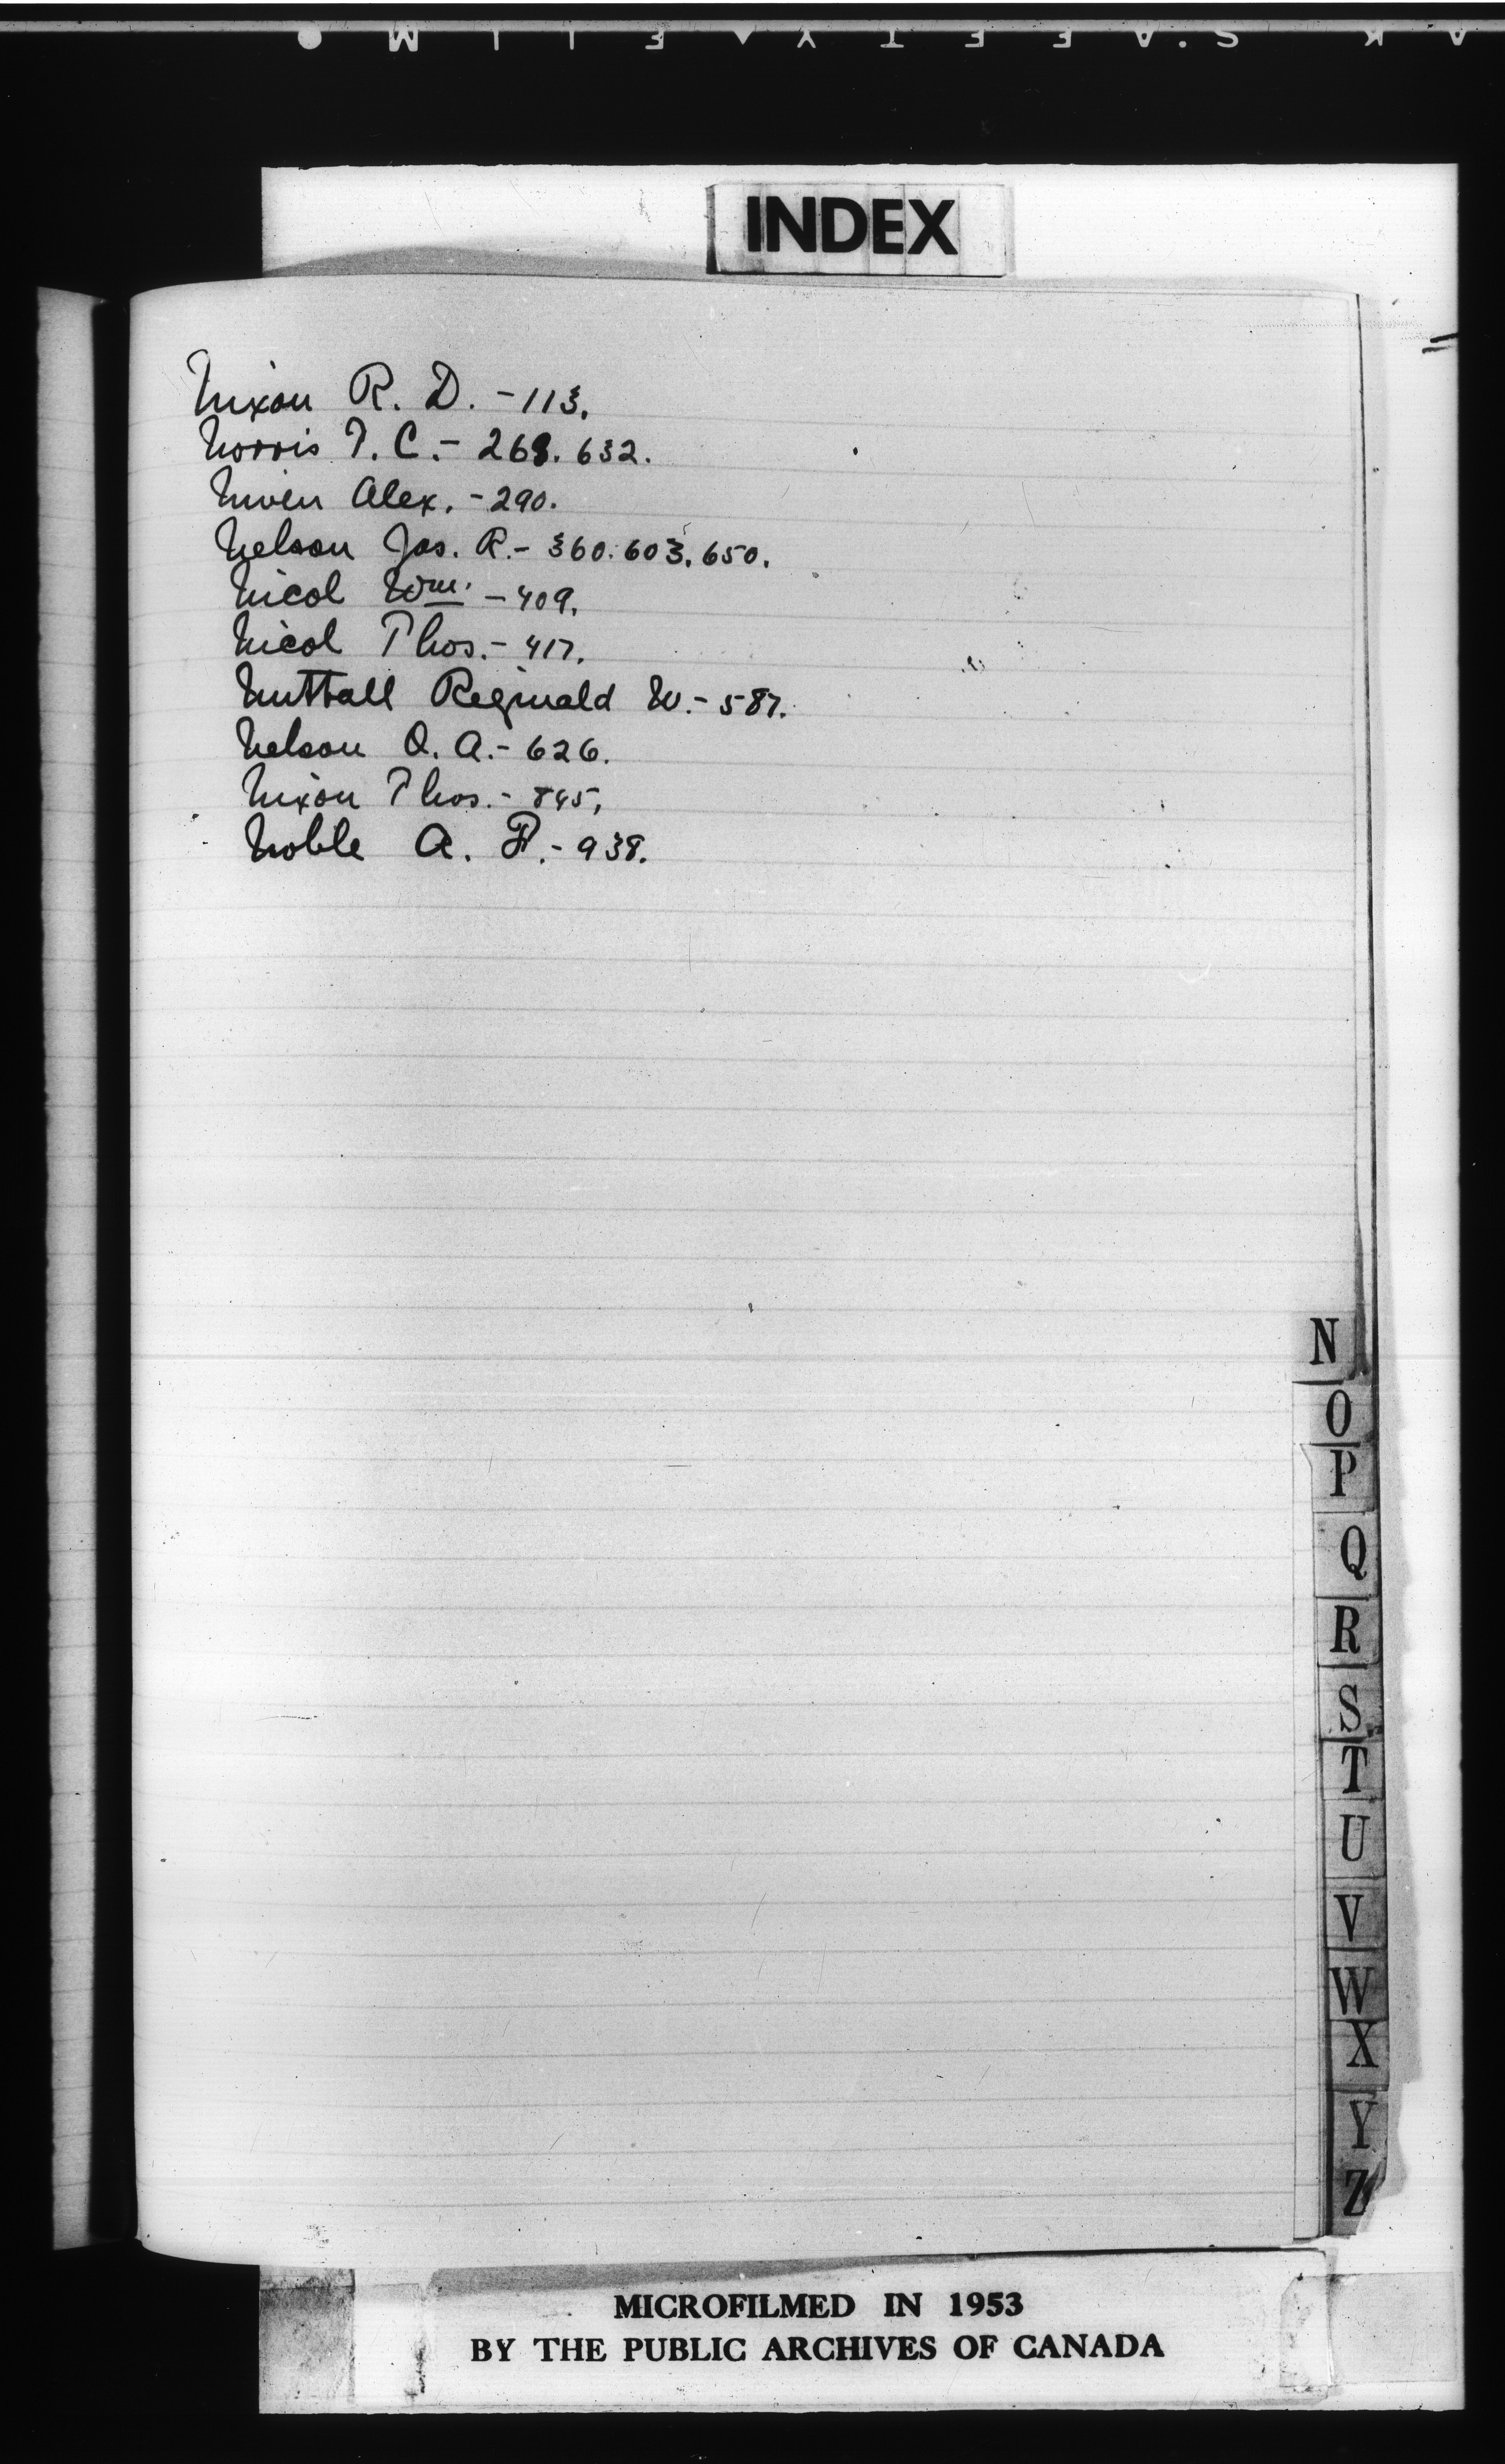 INDEX
Nixon R. D. - 113.
Norris T. C. - 268. 632.
Niven Alex. - 290.
Nelson Jas. R. - 360. 603. 650.
Nicol Wm. - 409.
Nicol Thos. - 417.
Nuttall Reginald W. - 587.
Nelson O. A. - 626.
Nixon Thos. - 845.
Noble A. F. - 938.
N
O
P
Q
R
S
T
U
V
W
X
Y
Z
MICROFILMED IN 1953
BY THE PUBLIC ARCHIVES OF CANADA